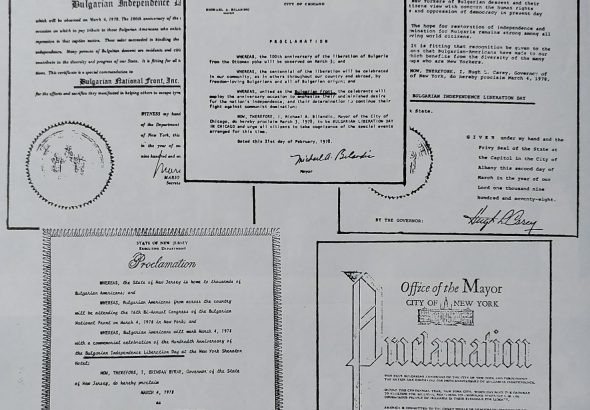 Bulgarian Independence
which will be observed on March 4, 1978. The 100th anniversary of the
occasion on which to pay tribute to those Bulgarian Americans who
and the
Many persons of Bulgarian descent are residents and
to the diversity and progress of our State. It is fitting for all
This certificate is a special commendation to
Bulgarian National Front, Inc.
for the efforts and sacrifice they manifested in helping others to escape
WITNESS my hand
of the Department
of New York, this
in the year of our
nine hundred and
MARIO
Secreta
MICHAEL A. BILANDIC
CITY OF CHICAGO
PROCLAMATION
WHEREAS, the 100th anniversary of the liberation of Bulgaria
from the Ottoman yoke will be observed on March 3; and
WHEREAS, the centennial of the liberation will be celebrated
in our community, as in others throughout our country and abroad, by
freedom-loving Bulgarians and all of Bulgarian origin; and
WHEREAS, united as the Bulgarian Front, the celebrants will
employ the anniversary occasion to emphasize their undiminished desire
for the nation's independence, and their determination to continue their
fight against communist domination:
NOW, THEREFORE, I, Michael A. Bilandic, Mayor of the City of
Chicago, do hereby proclaim March 3, 1978, to be BULGARIAN LIBERATION DAY
IN CHICAGO and urge all citizens to take cognizance of the special events
arranged for this time.
Dated this 21st day of February, 1978.
Michael A. Bilandic
Mayor
New Yorkers of Bulgarian descent and their
citizens with concern the human rights
and oppression of democracy in present day
The hope for restoration of independence and
domination for Bulgaria remains strong among all
loving world citizens.
It is fitting that recognition be given to the
that Bulgarian-Americans have made to our
which benefits from the diversity of the many
who are New Yorkers.
NOW, THEREFORE, I, Hugh L. Carey, Governor of
of New York, do hereby proclaim March 4, 1978,
BULGARIAN INDEPENDENCE LIBERATION DAY
State.
GIVEN under my hand and the
Privy Seal of the State at
the Capitol in the City of
Albany this second day of
March in the year of our
Lord one thousand nine
hundred and seventy-eight.
BY THE GOVERNOR:
Hugh L. Carey
STATE OF NEW JERSEY
EXECUTIVE DEPARTMENT
Proclamation
WHEREAS, the State of New Jersey is home to thousands of
Bulgarian Americans; and
WHEREAS, Bulgarian Americans from across the country
will be attending the 14th Bi-Annual Congress of the Bulgarian
National Front on March 4, 1978 in New York; and
WHEREAS, Bulgarian Americans will mark March 4, 1978
with a commercial celebration of the Hundredth Anniversary of
the Bulgarian Independence Liberation Day at the New York Sheraton
Hotel;
NOW, THEREFORE, I, BRENDAN BYRNE, Governor of the State
of New Jersey, do hereby proclaim
MARCH 4, 1978
as
Office of the Mayor
CITY OF NEW YORK
Proclamation